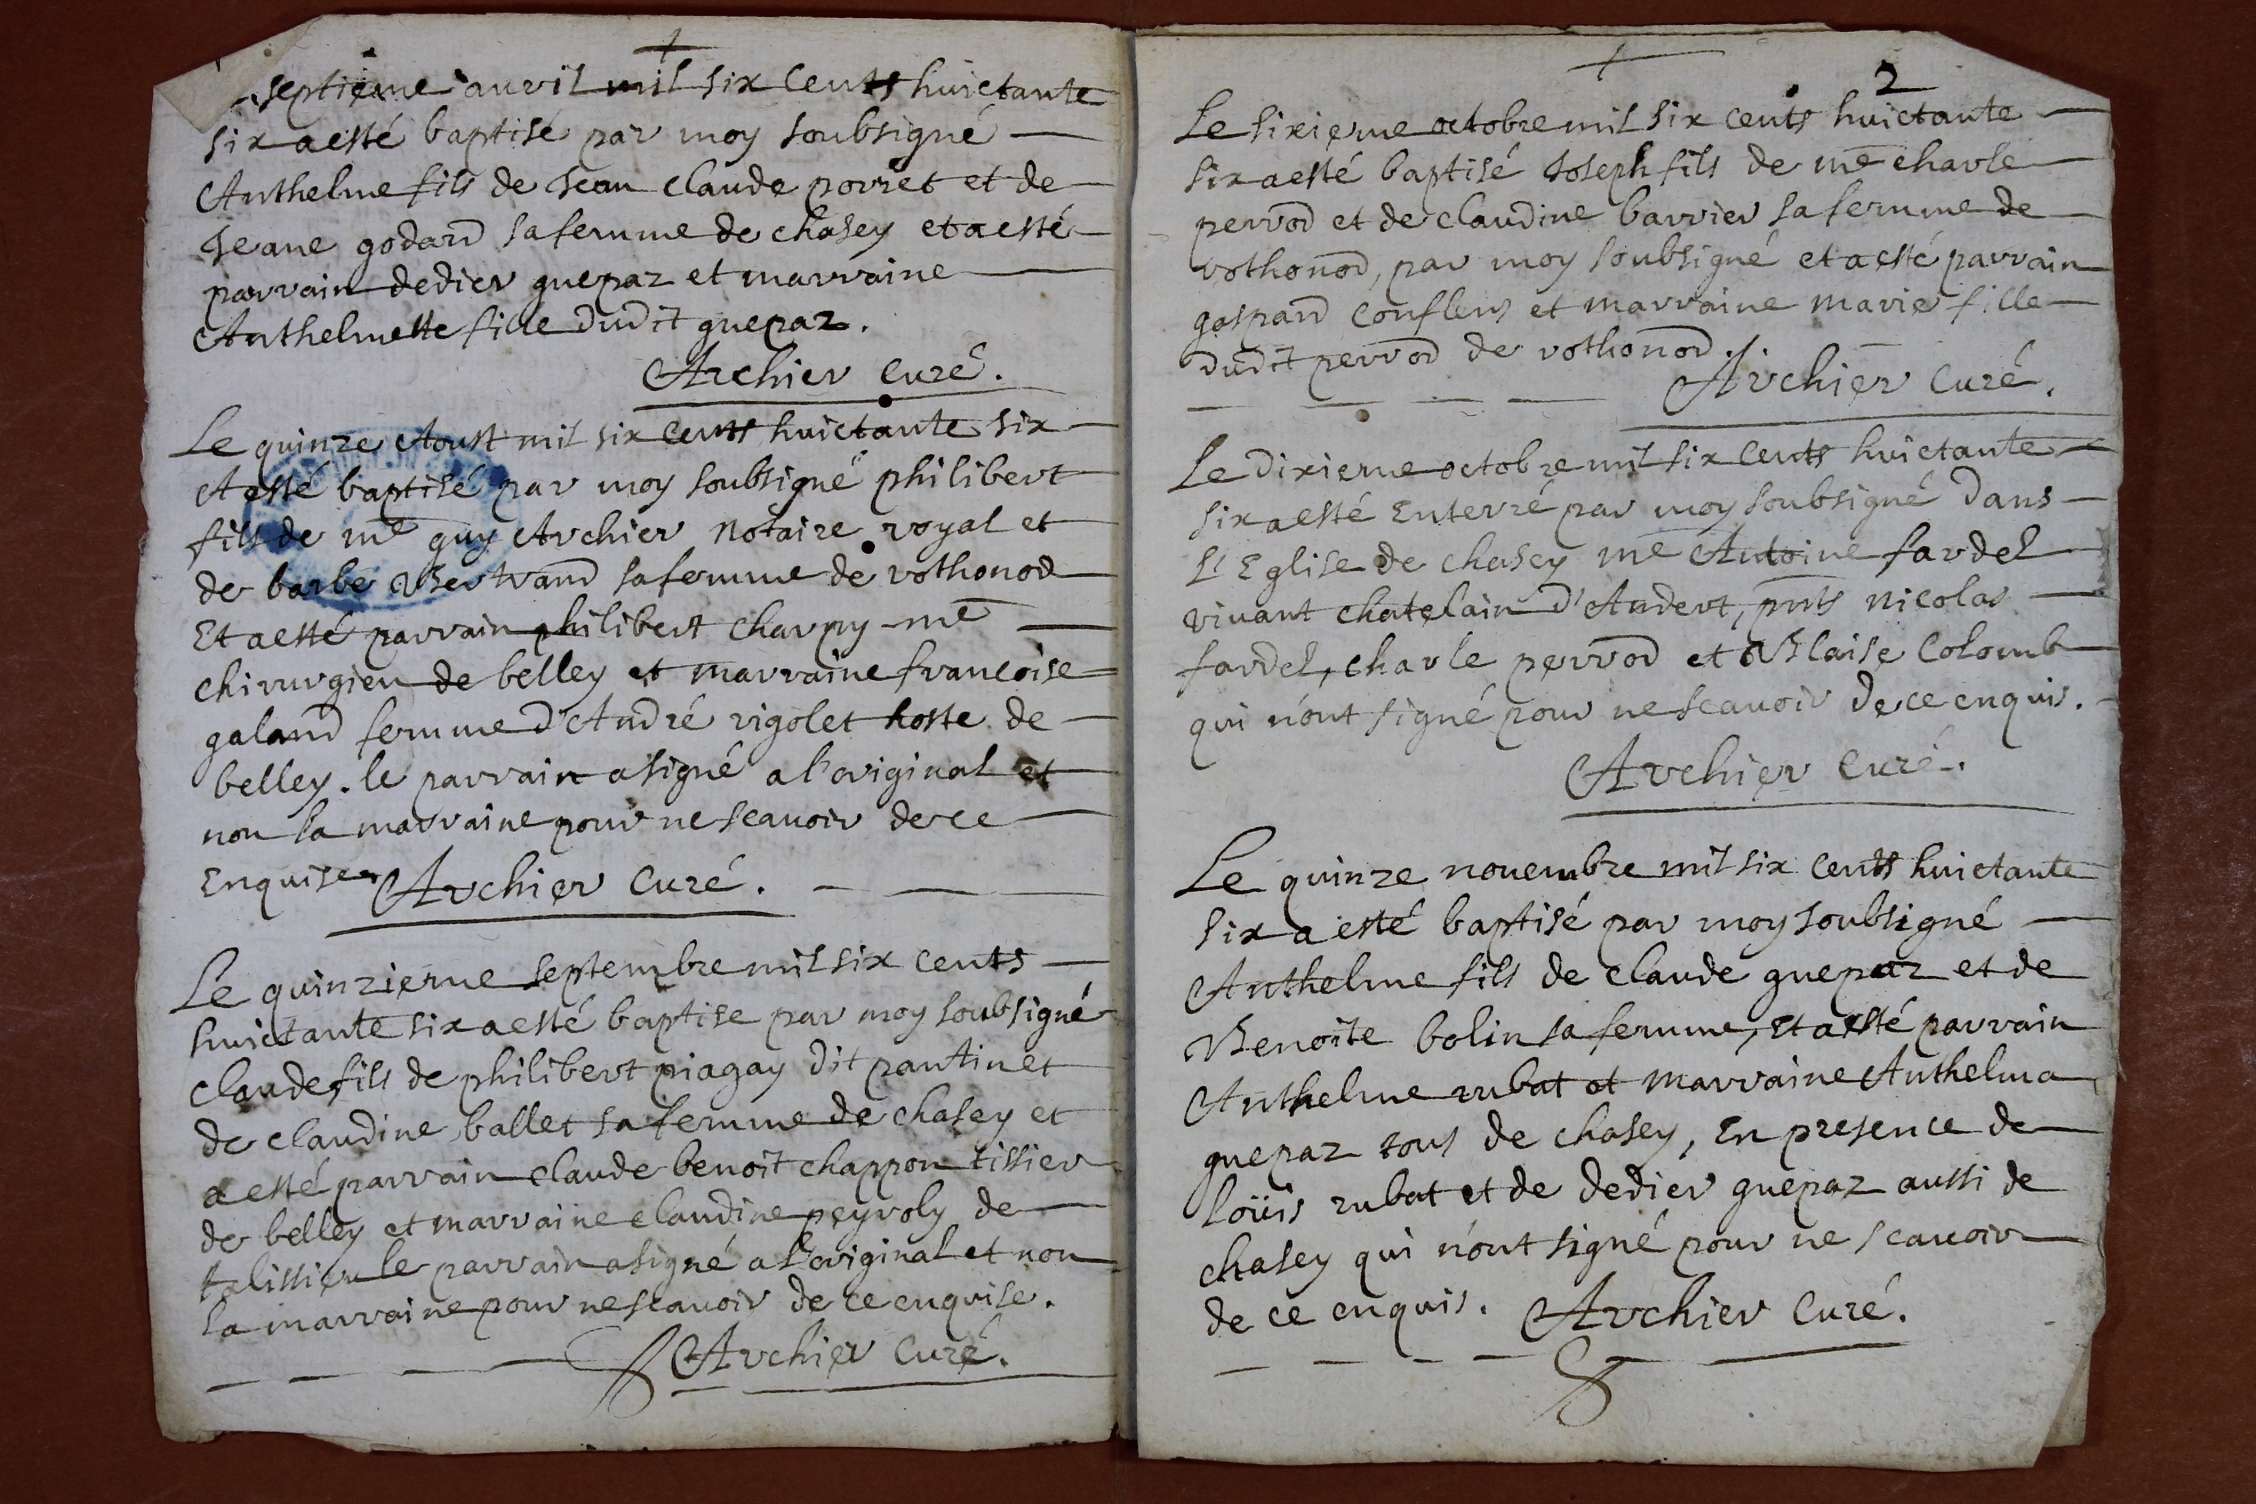 septieme auril mil six cents huictante
six a esté baptisé par moy soubsigné
Anthelme fils de Jean Claude porret et de
Jeane godard sa femme de chasey et a esté
parrain dedier guepaz et marraine
Anthelmette fille dudit guepaz.
Archier curé.
Le quinze Aoust mil six cents huictante six
A esté baptisé par moy soubsigné philibert
fils de me guy Archier Notaire royal et
de barbe Bertrand sa femme de rothonod
Et a esté parrain philibert charpy me
chirurgien de belley et marraine francoise
galand femme d'André rigolet hoste de
belley. le parrain a signé a l'original et
non la marraine pour ne scauoir de ce
Enquise Archier Curé.
Le quinzieme septembre mil six cents
huictante six a esté baptise par moy soubsigné
claude fils de philibert piagay dit pantin et
de claudine ballet sa femme de chasey et
a esté parrain claude benoit chappon tissier
de belley et marraine claudine peyroly de
talissieu le parrain a signé a l'original et non
la marraine pour ne scauoir de ce enquise.
Archier Curé.
2
Le sixieme octobre mil six cents huictante
six a esté baptisé Joseph fils de me charle
perrod et de claudine barrier sa femme de
rothonod, par moy soubsigné et a esté parrain
gaspard conflens et marraine marie fille
dudit perrod de rothonod.
Archier Curé.
Le dixieme octobre mil six cents huictante
six a esté Enterré par moy soubsigné dans
L'Eglise de chasey me Antoine fardel
viuant chatelain d'Andert, pnts nicolas
fardel, charle perrod et Blaise Colomb
qui n'ont signé pour ne scauoir de ce enquis.
Archier curé.
Le quinze nouembre mil six cents huictante
six a esté baptisé par moy soubsigné
Anthelme fils de claude guepaz et de
Benoite bolin sa femme, Et a esté parrain
Anthelme rubat et marraine Anthelma
guepaz tous de chasey, En presence de
Loüis rubat et de dedier guepaz aussi de
chasey qui n'ont signé pour ne scauoir
de ce enquis. Archier Curé.